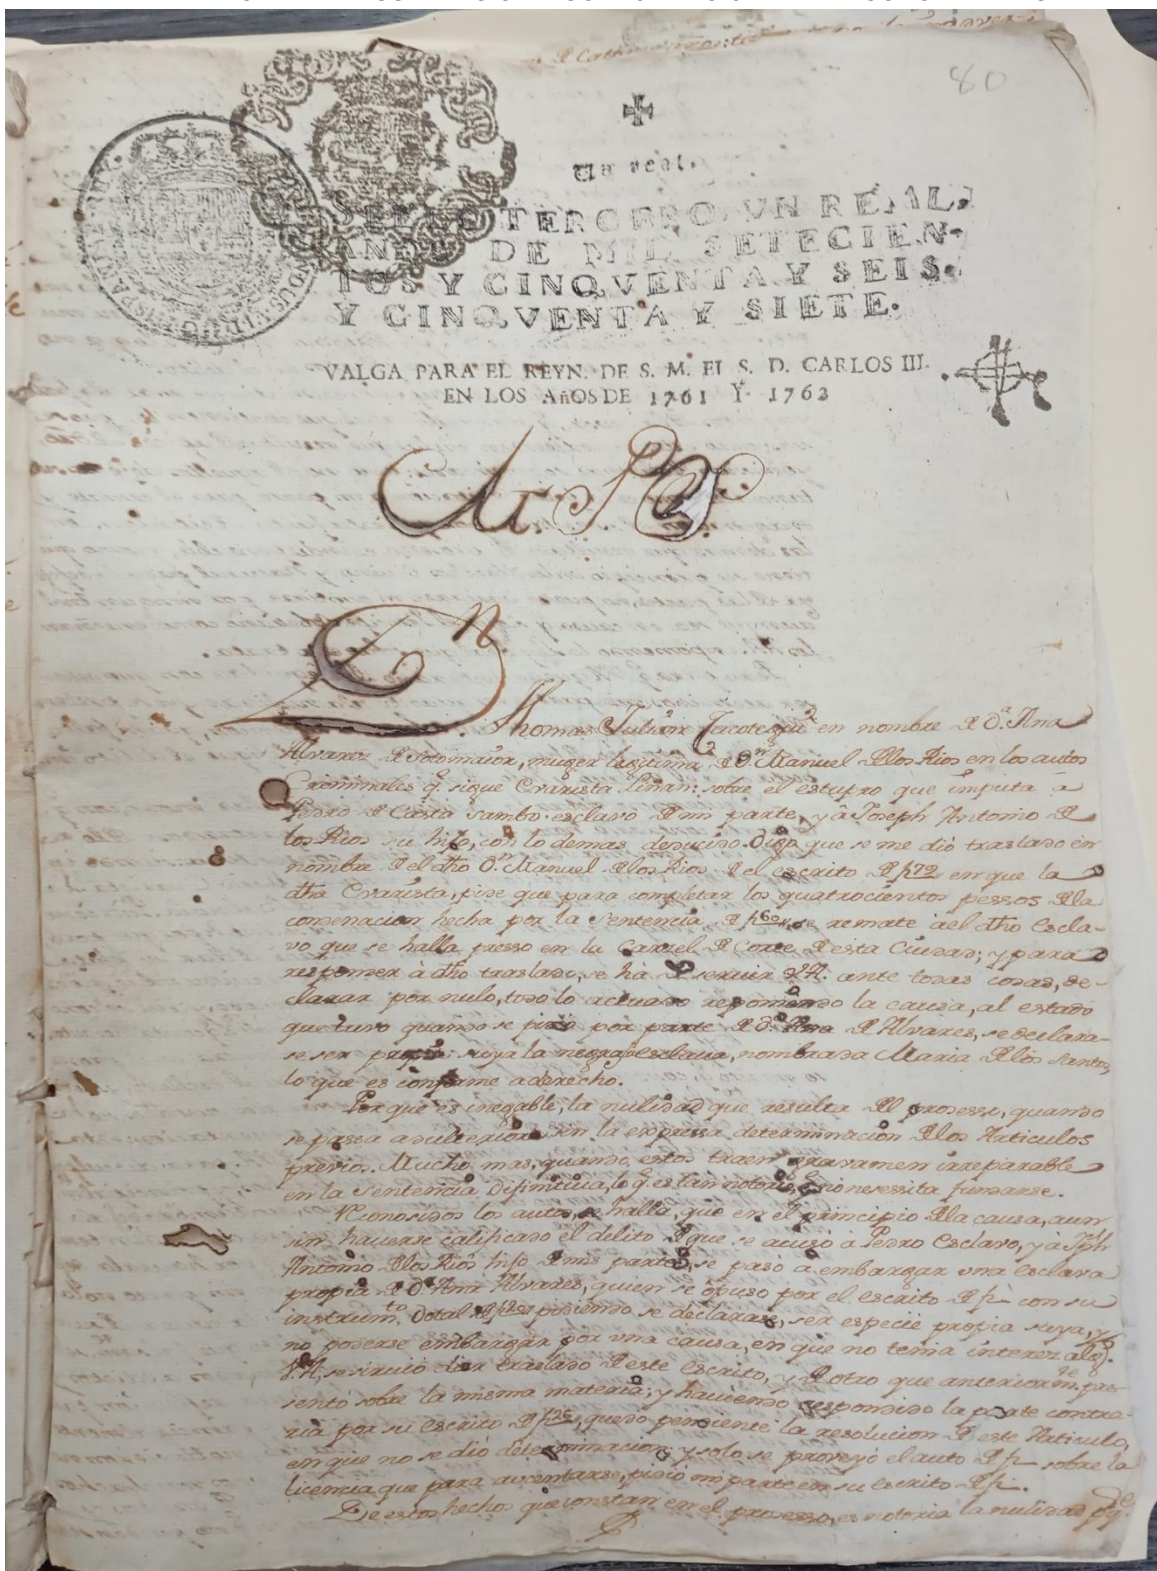 80
Un real.
SELLO TERCERO, VN REAL,
AÑOS DE MIL SETECIEN-
TOS Y CINQVENTA Y SEIS,
Y CINQVENTA Y SIETE.
VALGA PARA EL REYN. DE S. M. El S. D. CARLOS III.
EN LOS AñOS DE 1761 Y 1762
M. P. S.
Dn
Thomas Julian en nombre D d.ª Ana
Alvarez D Sotomaior, muger legitima D Dn Manuel Dlos Rios en los autos
Criminales q. sigue Evarista Liñan: sobre el estupro que imputa â
Pedro D Casta Sambo esclavo D mi parte, y â Joseph Antonio D
los Rios su hijo, con lo demas deducido. Digo que se me dió traslado en
nombre Del dho Dn Manuel Dlos Rios Del escrito D f172 en que la
dha Evarista, pide que para completar los quatrocientos pessos Dla
comenacion hecha por la Sentencia D f160, se remate àel dho Escla-
vo que se halla presso en la Carzel D Corte Desta Ciudad; y para
responder à dho traslado, se hà D servir VA. ante todas cosas, de-
clarar por nulo, todo lo actuado reponiendo la causa, al estado
que tuvo quando se pidió por parte D d.ª Ana D Alvares, se declara-
se ser propia suya la negra esclava, nombrada Maria Dlos Santos,
lo que es conforme a derecho.
Por que es inegable, la nulidad que resulta Dl prosesso, quando
se passa a ulteriores sin la expressa determinacion Dlos Articulos
previos. Mucho mas, quando estos traen gravamen irreparable
en la Sentencia Difinitiva, lo q. es tan notorio, q. no nesessita fundarse.
Reconosidos los autos, se halla, que en el principio Dla causa, aun
sin haverse calificado el delito D que se acusó à Pedro Esclavo, y à Jph
Antonio Dlos Rios hijo D mis partes, se pasó a embargar vna esclava
propia D d.ª Ana Alvares, quien se opuso por el escrito D f con su
instrum.to Dotal D pidiendo se declarase, ser especie propia suya, y
no poderse embargar por vna causa, en que no tenia interez alg.º
V.A. se sirvió dar traslado Deste escrito, y D otro que anteriorm.te pre-
sentó sobre la misma materia; y haviendo respondido la parte contra-
ria por su escrito D f136, quedo pendiente la resolucion D este Articulo,
en que no se dió determinacion y solo se proveyó el auto D f sobre la
licencia que para aucentarse, pidió mi parte en su escrito D f.
De estos hechos que constan en el prosesso, es notoria la nulidad